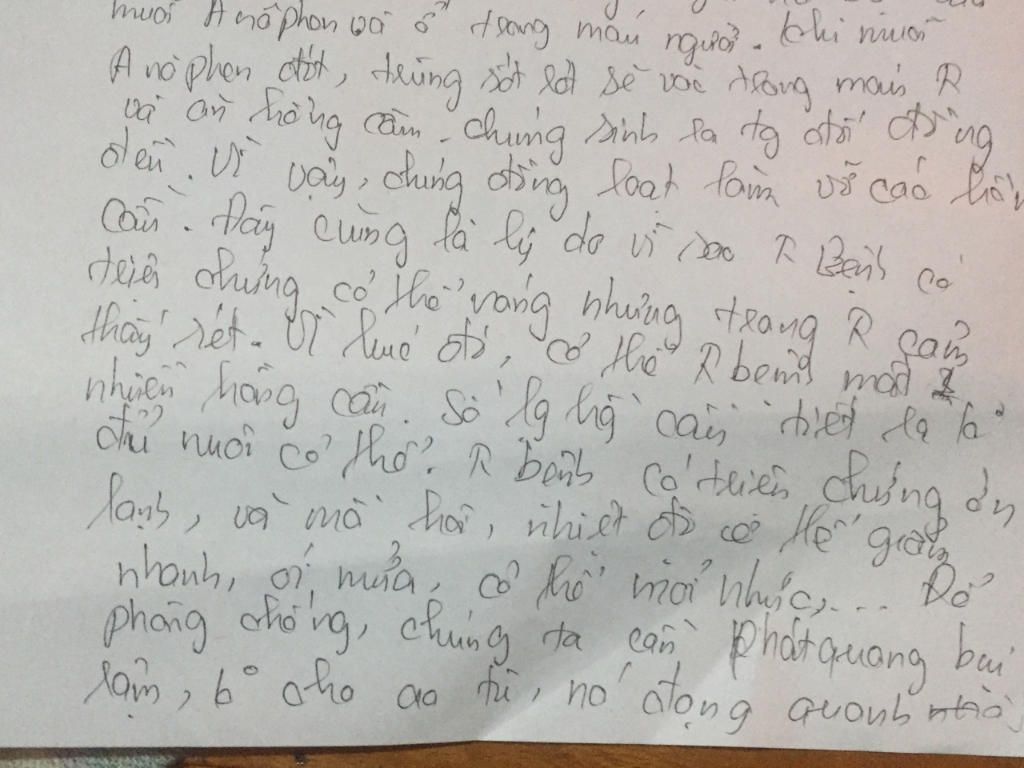 muỗi Anôphen và ở trong máu người. Khi muỗi
Anôphen đốt, trùng sốt rét sẽ vào trong máu R
và ăn hồng cầu. chúng sinh ra tg đối đồng
đều. Vì vậy, chúng đồng loạt làm vỡ các hồng
cầu. Đây cũng là lý do vì sao R Bệnh có
triệu chứng cơ thể vàng nhưng trong R cảm
thấy rét. Vì lúc đó, cơ thể R bệnh mất
nhiều hồng cầu. Số lg hồng cầu
đủ nuôi cơ thể. R bệnh có triệu chứng ớn
lạnh, và mồ hôi, nhiệt độ có thể giảm
nhanh, ói mửa, cơ thể mỏi nhức,.... Để
phòng chống, chúng ta cần phát quang bụi
rậm, ko cho ao tù, nc đọng quanh nhà,